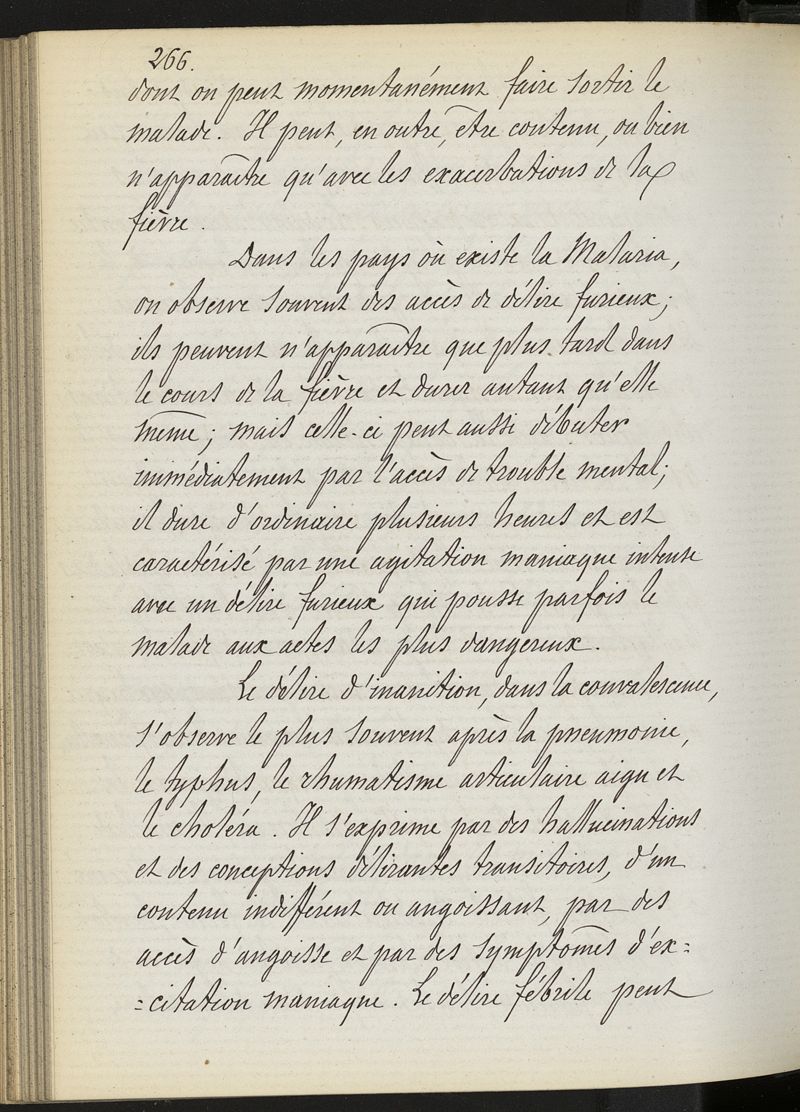 266.
dont on peut momentanément faire sortir le
malade. Il peut, en outre, être contenu, ou bien
n'apparaître qu'avec les exacerbations de la
fièvre.
Dans les pays où existe la Malaria,
on observe souvent des accès de délire furieux;
ils peuvent n'apparaître que plus tard dans
le cours de la fièvre et durer autant qu'elle
même; mais celle-ci peut aussi débuter
immédiatement par l'accès de trouble mental;
il dure d'ordinaire plusieurs heures et est
caractérisé par une agitation maniaque intense
avec un délire furieux qui pousse parfois le
malade aux actes les plus dangereux.
Le délire d'inanition, dans la convalescence,
s'observe le plus souvent après la pneumonie,
le typhus, le rhumatisme articulaire aigu et
le choléra. Il s'exprime par des hallucinations
et des conceptions délirantes transitoires, d'un
contenu indifférent ou angoissant, par des
accès d'angoisse et par des symptômes d'ex=
=citation maniaque. Le délire fébrile peut